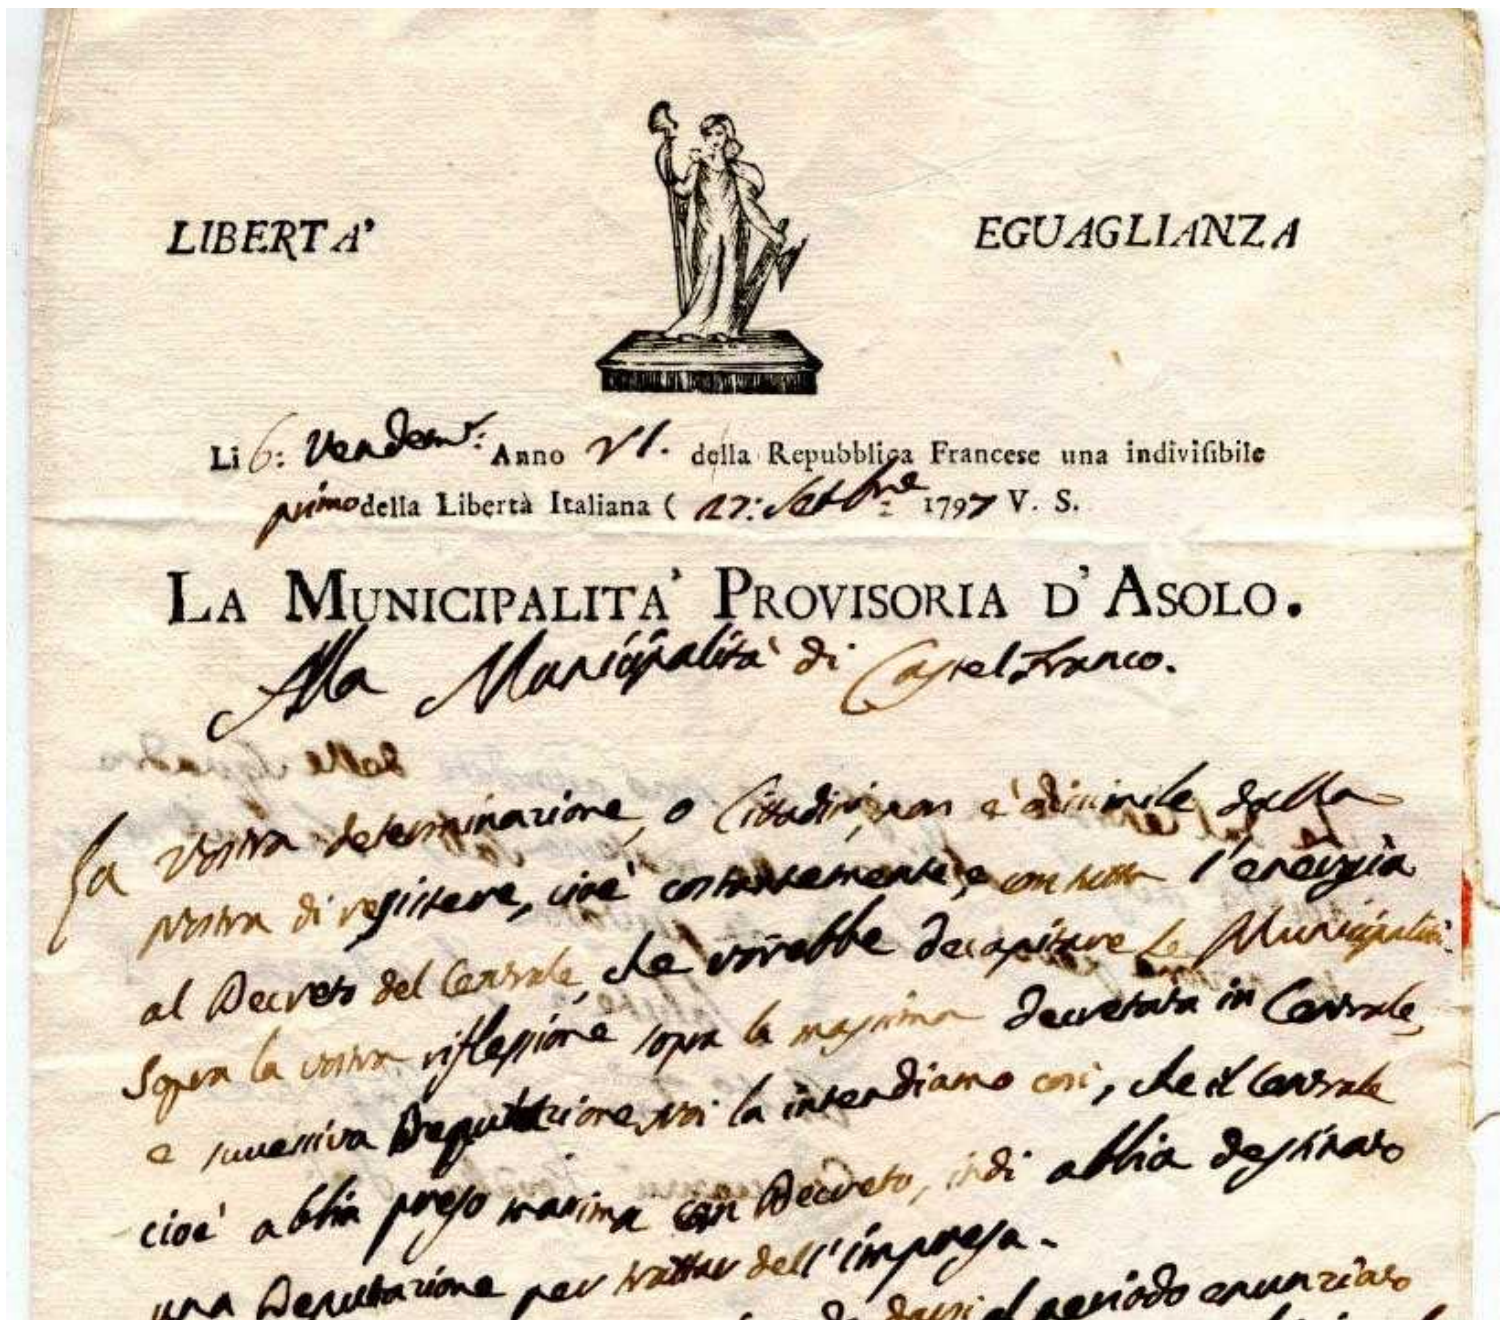 LIBERTA' EGUAGLIANZA
Li 6: Vendem.r: Anno VI. della Repubblica Francese una indivisibile
primo della Libertà Italiana ( 27: Settbre 1797 V. S.
LA MUNICIPALITA' PROVISORIA D' ASOLO.
Alla Municipalità di Castel Franco.
La vostra determinazione, o Cittadini, non è dissimile dalla
nostra di resistere, cioè costantemente, e con tutta l'energia
al Decreto del Centrale, che vorrebbe decapitare le Municipalità.
Sopra la vostra riflessione sopra la massima decretata in Centrale,
e successiva Deputazione, Noi la intendiamo così, che il Centrale
cioè abbia preso massima con Decreto, indi abbia destinato
una Deputazione per trattar dell'impresa.
darsi al periodo enunziato